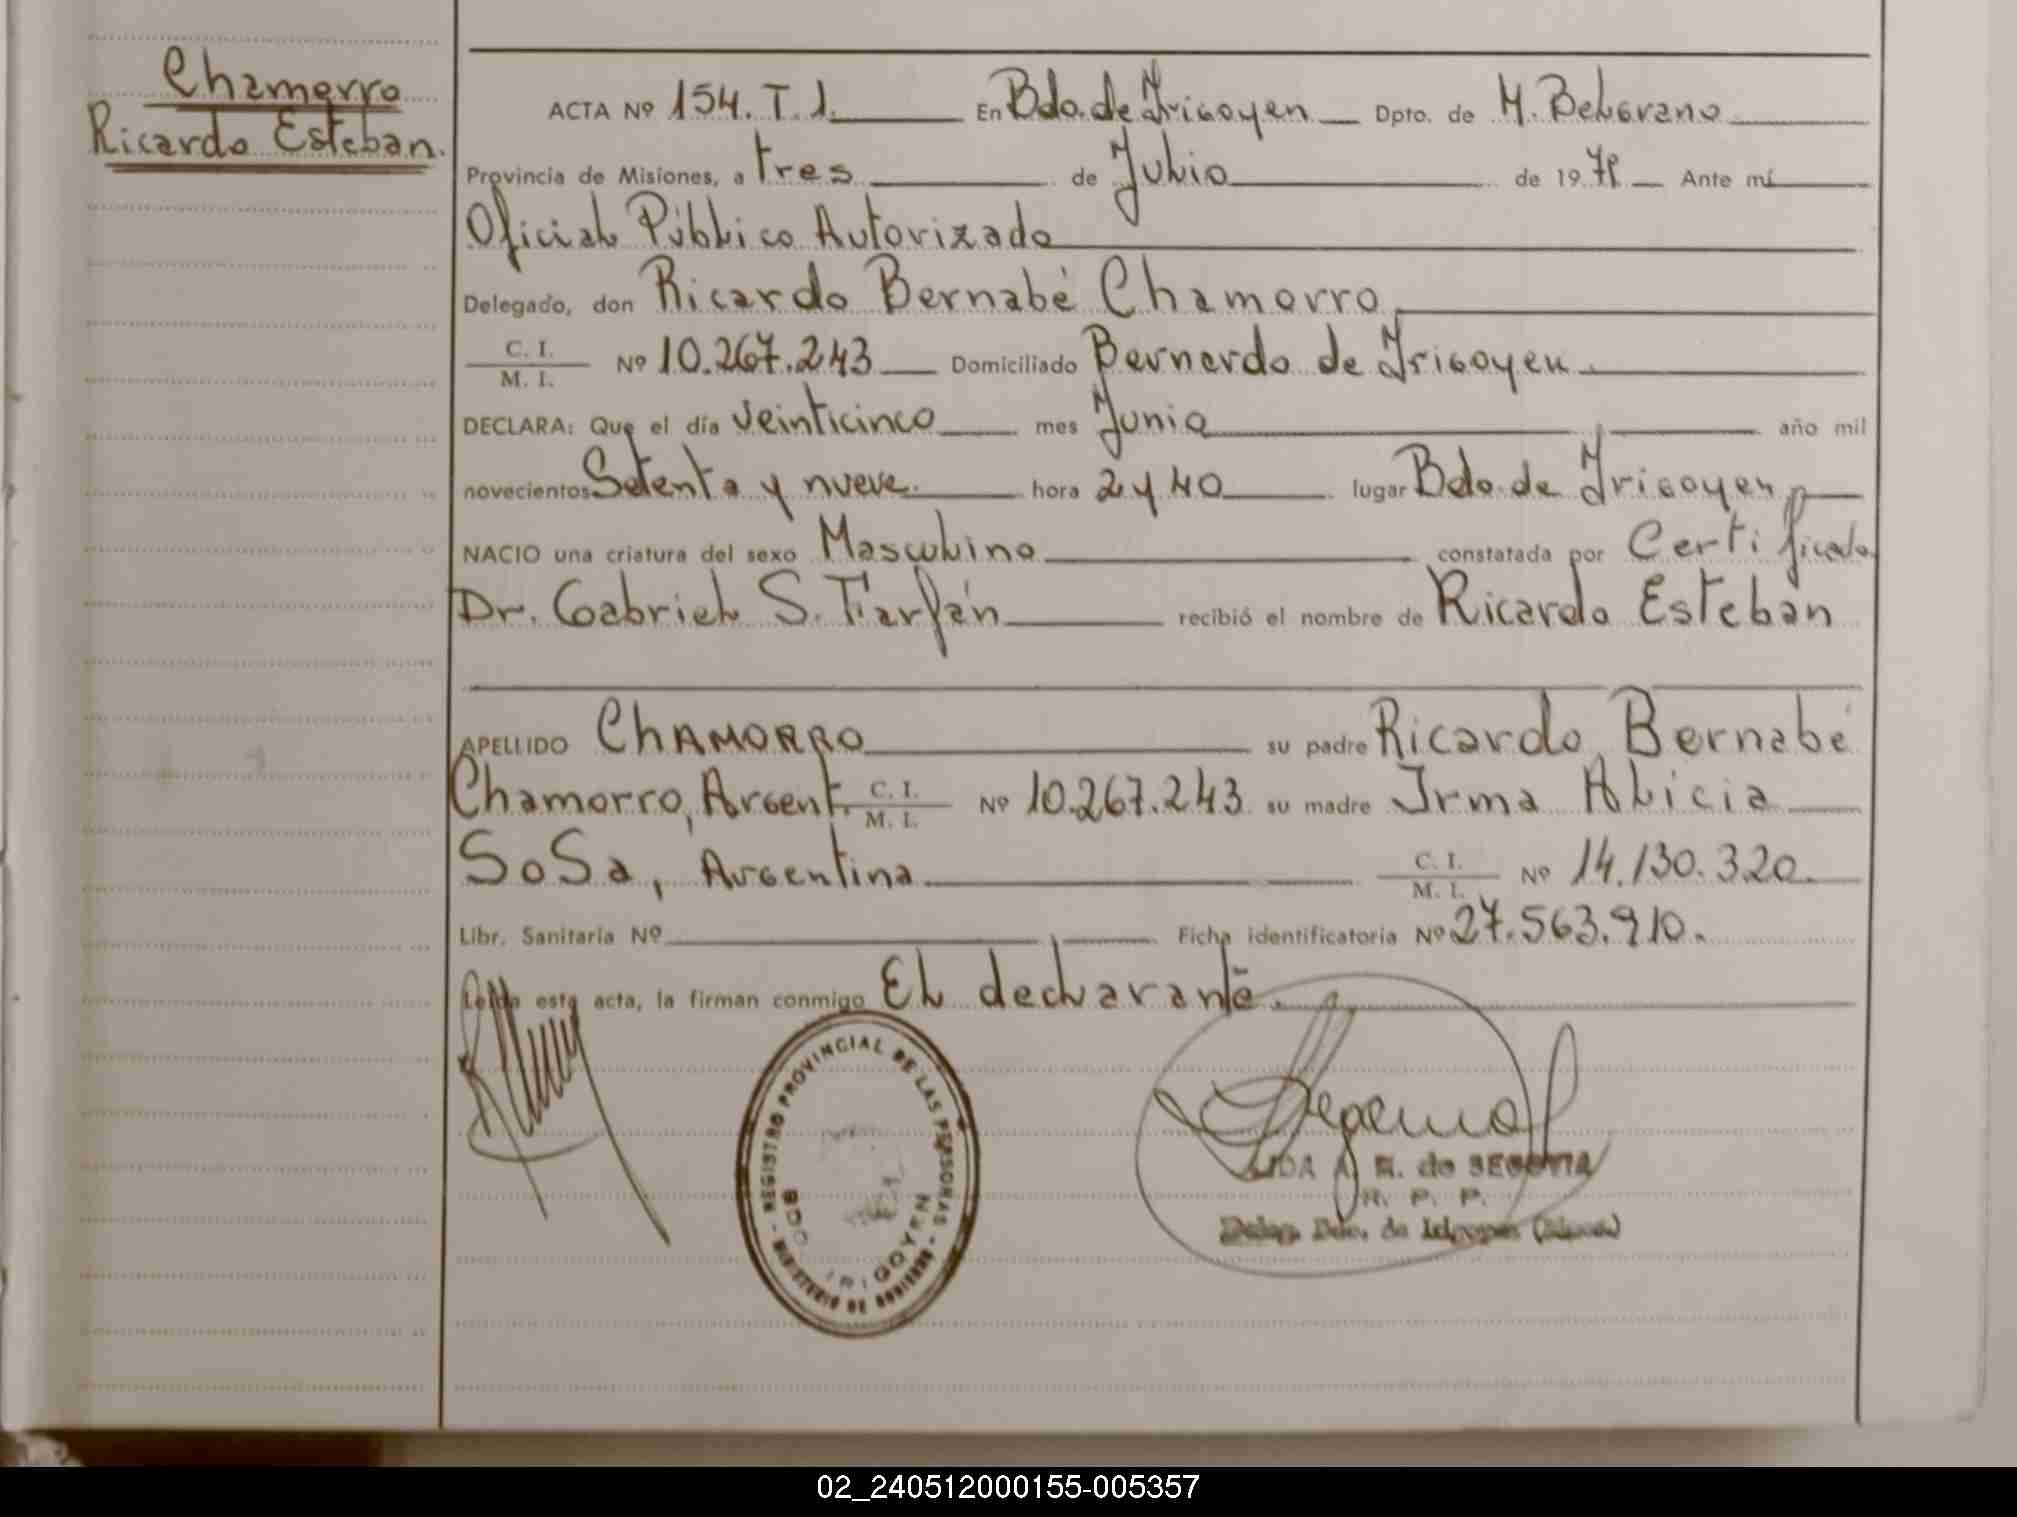 Chamorro
Ricardo Esteban.
ACTA Nº 154. T. 1. En Bdo. de Irigoyen Dpto. de M. Belgrano
Provincia de Misiones, a tres de Julio de 1979 Ante mí
Oficial Público Autorizado
Delegado, don Ricardo Bernabé Chamorro
C. I.
M. I. Nº 10.267.243 Domiciliado Bernardo de Irigoyen.
DECLARA: Que el día veinticinco mes Junio año mil
novecientos Setenta y nueve. hora 2 y 40 lugar Bdo. de Irigoyen
NACIO una criatura del sexo Masculino constatada por Certificado
Dr. Gabriel S. Farfán recibió el nombre de Ricardo Esteban
APELLIDO CHAMORRO su padre Ricardo Bernabé
Chamorro, Argent. C. I.
M. I. Nº 10.267.243 su madre Irma Alicia
SoSa, Argentina C. I.
M. I. Nº 14.130.320.
Libr. Sanitaria Nº Ficha identificatoria Nº 27.563.910.
Leída esta acta, la firman conmigo El declarante.
REGISTRO PROVINCIAL DE LAS PERSONAS - MINISTERIO DE GOBIERNO -
BDO IRIGOYEN
A. R. de SEGOVIA
R. P. P.
Bdo. de Irigoyen
02_240512000155-005357